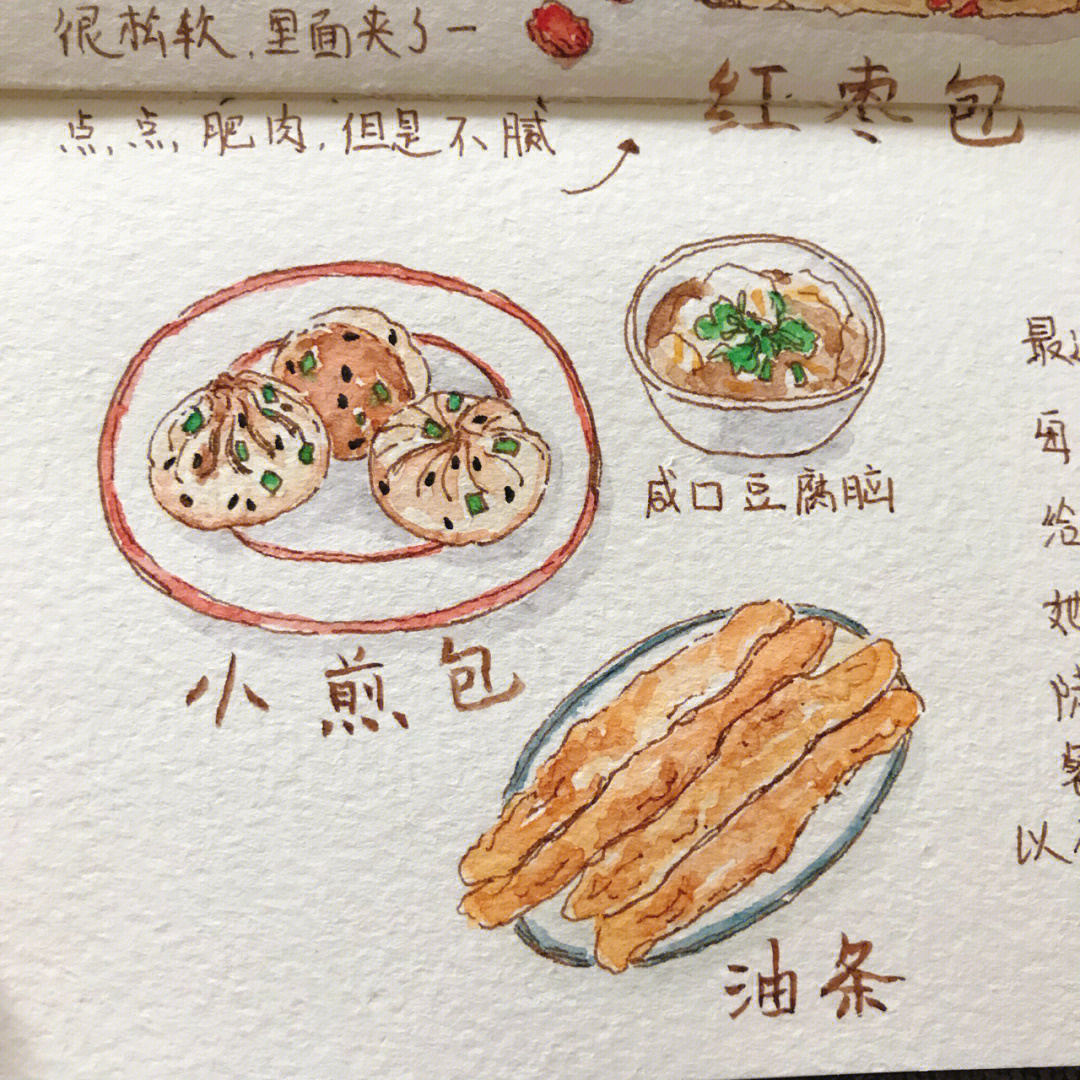 很松软,里面夹了一
点点肥肉,但是不腻
红枣包
咸口豆腐脑
小煎包
油条
最
每
给
她
以